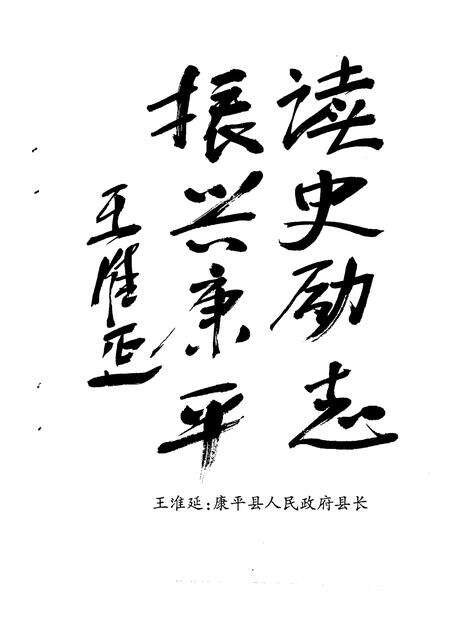 读史励志
振兴康平
王淮延
王淮延:康平县人民政府县长